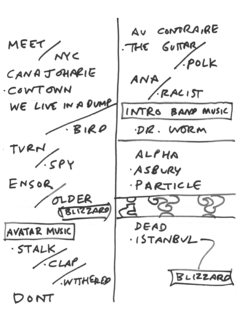 MEET/
NYC
CANAJOHARIE
·COWTOWN
WE LIVE IN A DUMP/
·BIRD
TURN/
·SPY
ENSOR/
OLDER
BLIZZARD
AVATAR MUSIC
·STALK/
·CLAP/
·WITHERED
DONT
AU CONTRAIRE
·THE GUITAR/
·POLK
ANA/
·RACIST
INTRO BAND MUSIC
·DR. WORM
ALPHA
·ASBURY
·PARTICLE
DEAD
·ISTANBUL
BLIZZARD